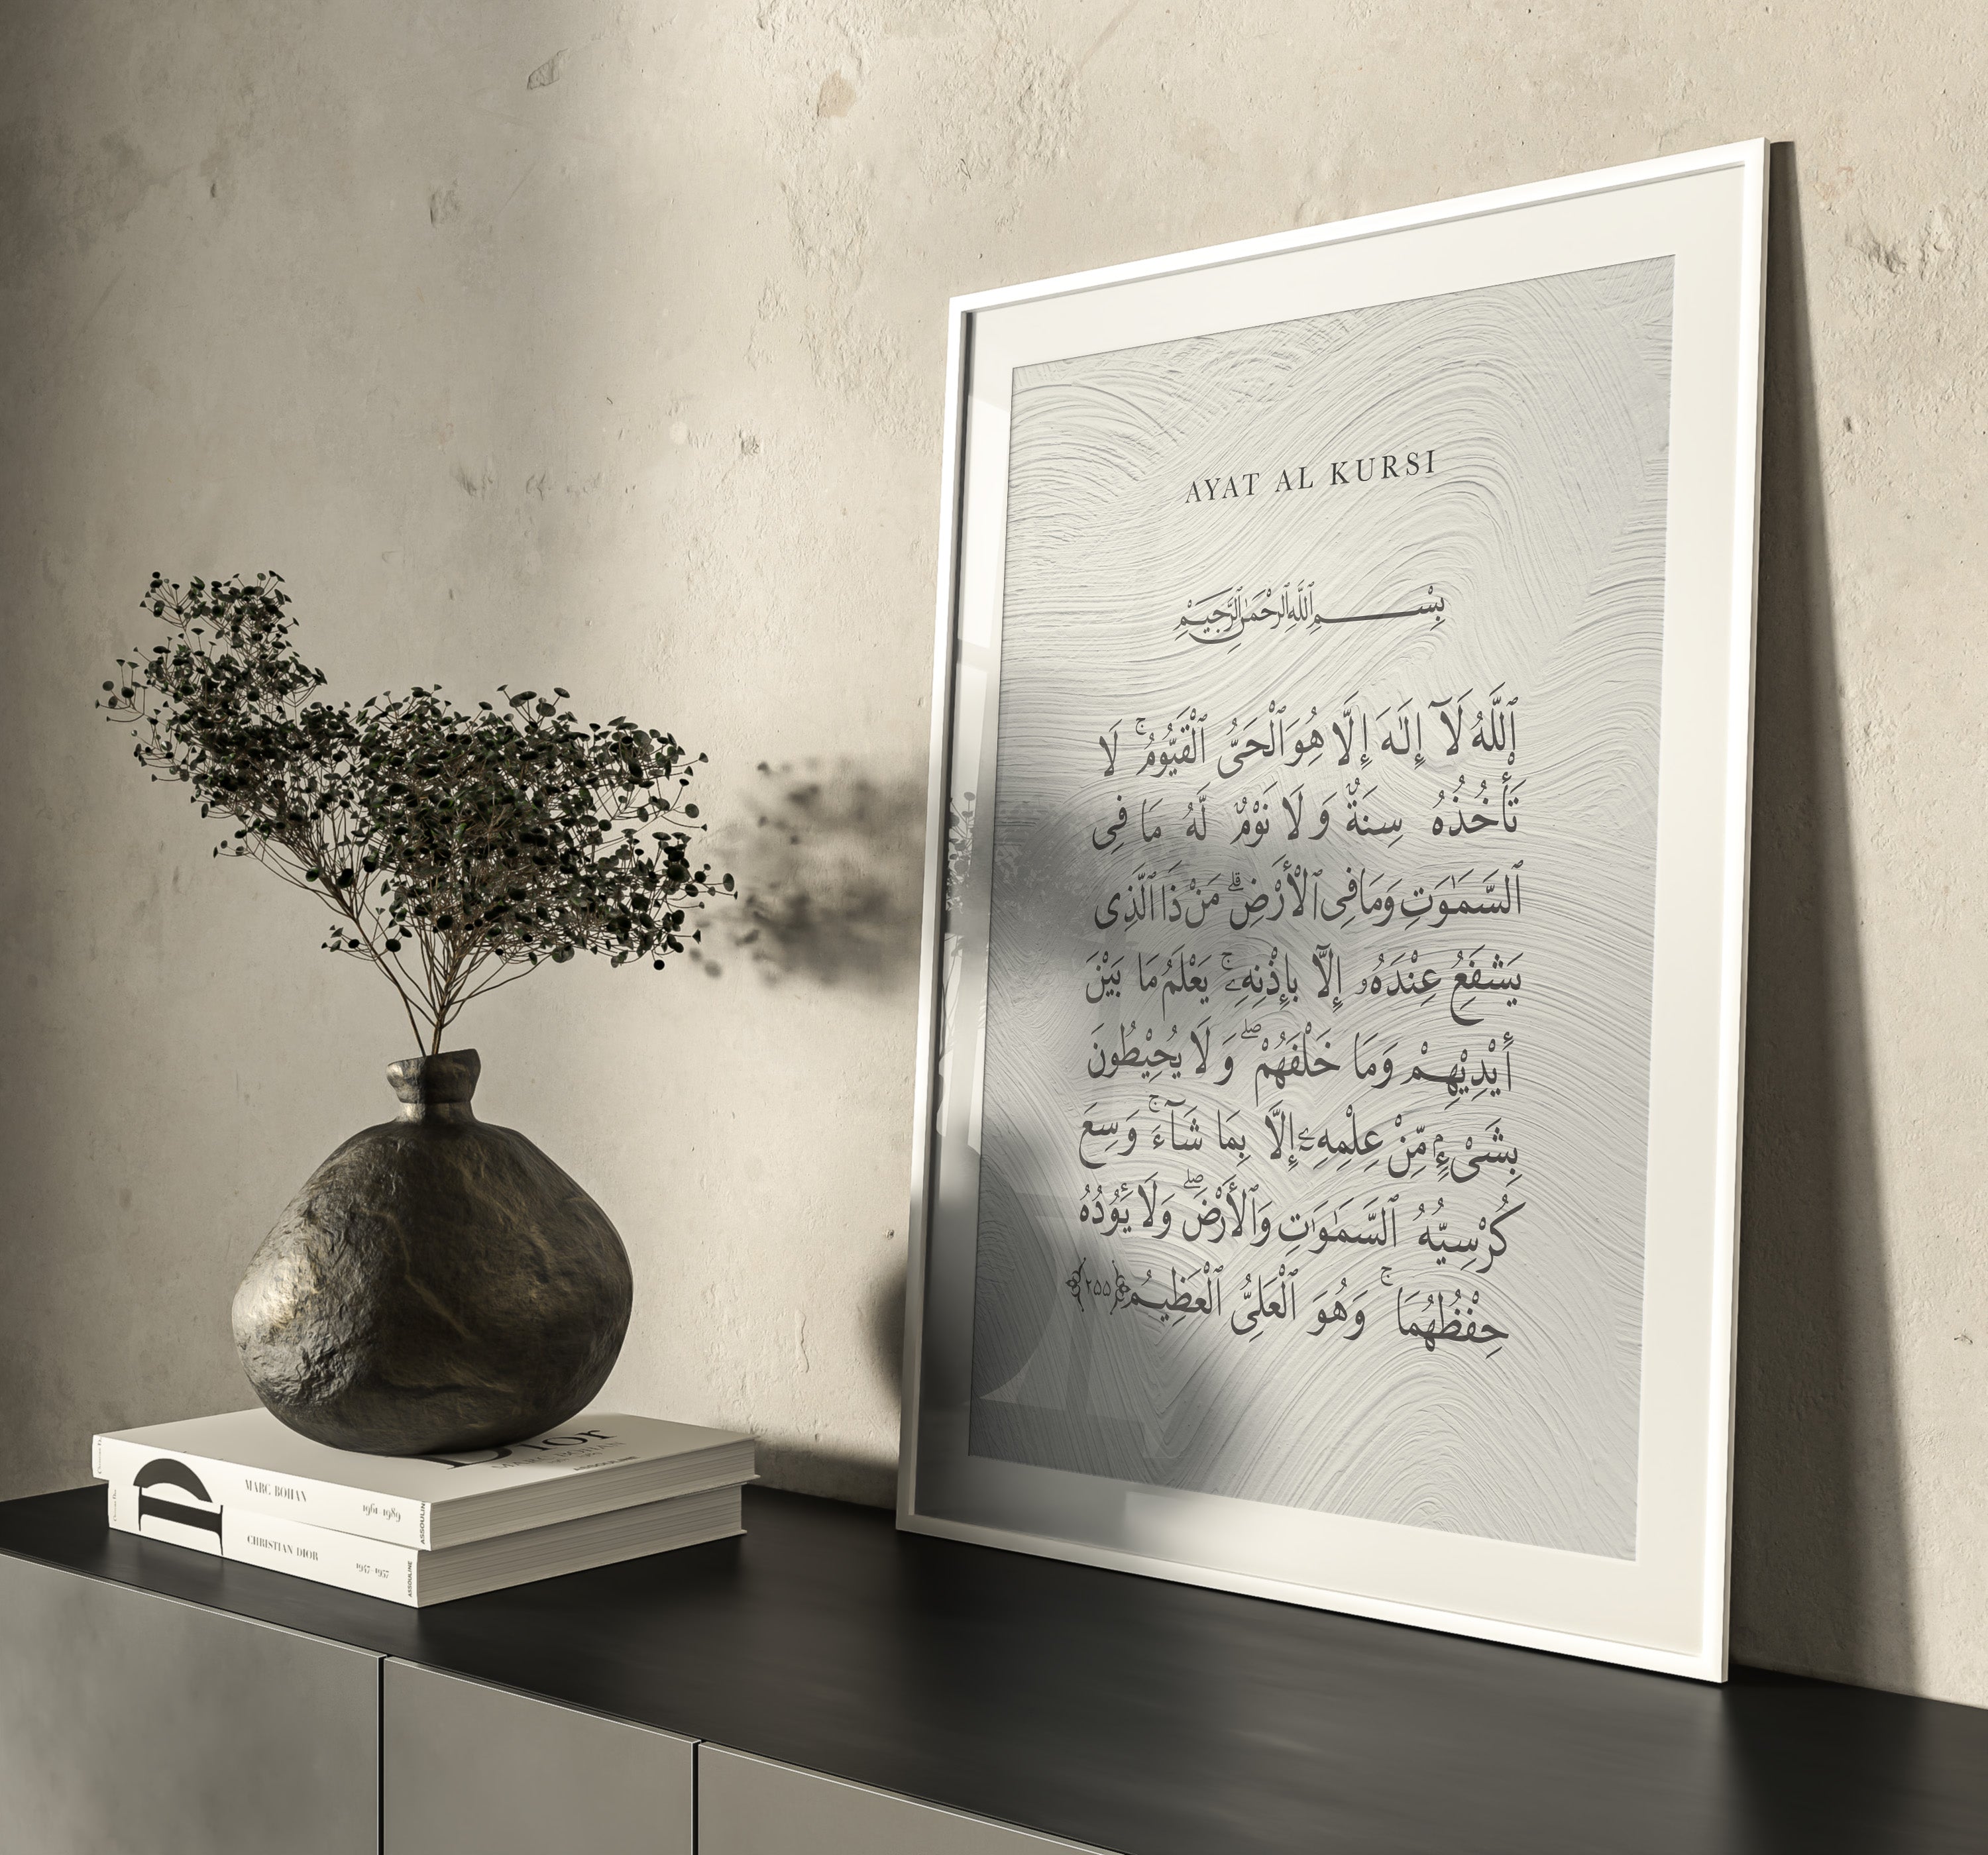 AYAT AL KURSI
بِسْمِ ٱللَّهِ ٱلرَّحْمَٰنِ ٱلرَّحِيمِ
ٱللَّهُ لَآ إِلَٰهَ إِلَّا هُوَ ٱلْحَىُّ ٱلْقَيُّومُ ۚ لَا
تَأْخُذُهُ سِنَةٌ وَ لَا نَوْمٌ لَّهُ مَا فِى
ٱلسَّمَٰوَٰتِ وَمَا فِى ٱلْأَرْضِ ۗ مَن ذَا ٱلَّذِى
يَشْفَعُ عِنْدَهُۥ إِلَّا بِإِذْنِهِۦ ۚ يَعْلَمُ مَا بَيْنَ
أَيْدِيْهِمْ وَمَا خَلْفَهُمْ ۖ وَ لَا يُحِيْطُونَ
بِشَىْءٍ مِّنْ عِلْمِهِۦٓ إِلَّا بِمَا شَآءَ ۚ وَسِعَ
كُرْسِيُّهُ ٱلسَّمَٰوَٰتِ وَٱلْأَرْضَ ۖ وَلَا يَـُٔوْدُهُ
حِفْظُهُمَا ۚ وَهُوَ ٱلْعَلِىُّ ٱلْعَظِيمُ ﴿٢٥٥﴾
Dior
MARC BOHAN
ASSOULINE
MARC BOHAN 1961-1989 ASSOULINE
CHRISTIAN DIOR 1947-1957 ASSOULINE